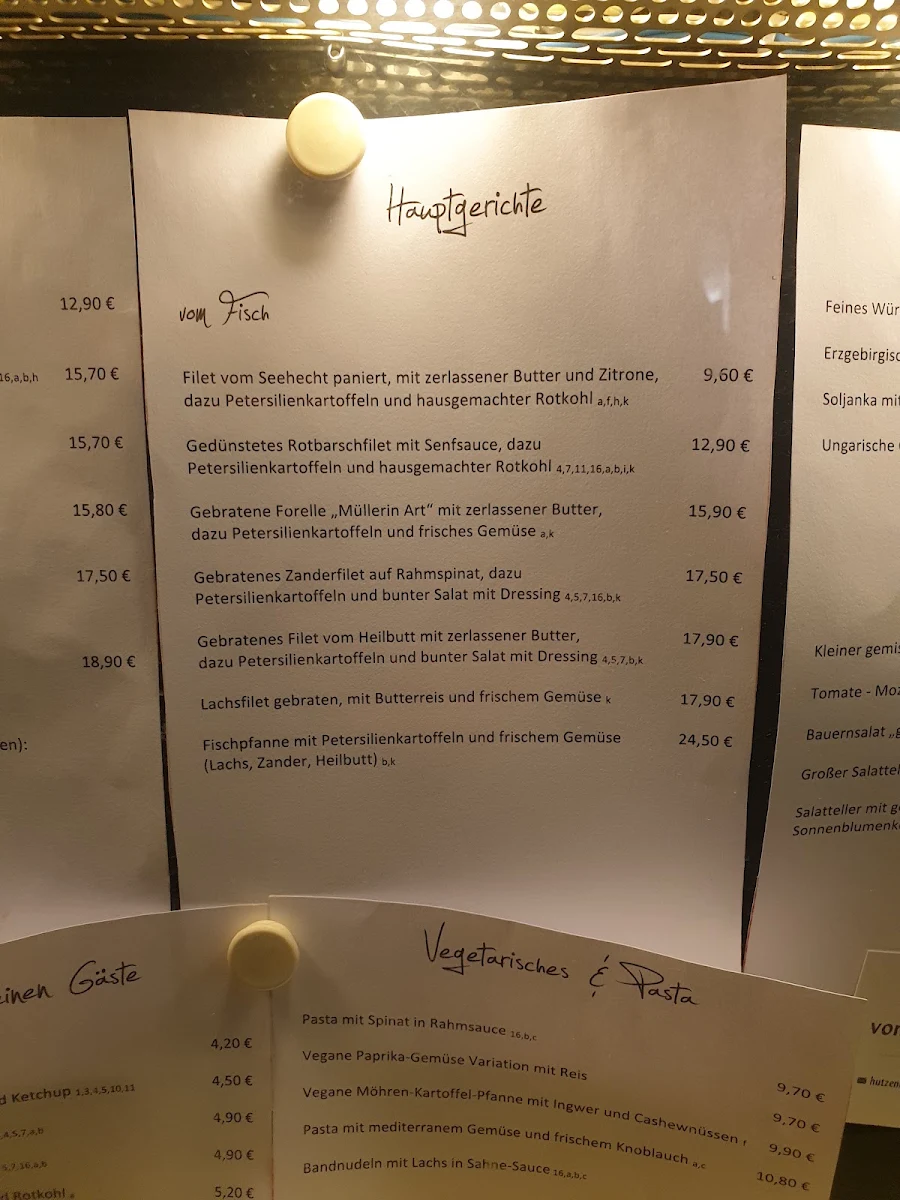 12,90 €
16,a,b,h 15,70 €
15,70 €
15,80 €
17,50 €
18,90 €
en):
Hauptgerichte
vom Fisch
Filet vom Seehecht paniert, mit zerlassener Butter und Zitrone, 9,60 €
dazu Petersilienkartoffeln und hausgemachter Rotkohl a,f,h,k
Gedünstetes Rotbarschfilet mit Senfsauce, dazu 12,90 €
Petersilienkartoffeln und hausgemachter Rotkohl 4,7,11,16,a,b,i,k
Gebratene Forelle „Müllerin Art“ mit zerlassener Butter, 15,90 €
dazu Petersilienkartoffeln und frisches Gemüse a,k
Gebratenes Zanderfilet auf Rahmspinat, dazu 17,50 €
Petersilienkartoffeln und bunter Salat mit Dressing 4,5,7,16,b,k
Gebratenes Filet vom Heilbutt mit zerlassener Butter, 17,90 €
dazu Petersilienkartoffeln und bunter Salat mit Dressing 4,5,7,b,k
Lachsfilet gebraten, mit Butterreis und frischem Gemüse k 17,90 €
Fischpfanne mit Petersilienkartoffeln und frischem Gemüse 24,50 €
(Lachs, Zander, Heilbutt) b,k
Feines Wür
Erzgebirgisc
Soljanka mit
Ungarische
Kleiner gemis
Tomate - Moz
Bauernsalat „g
Großer Salattel
Salatteller mit g
Sonnenblumenk
einen Gäste
4,20 €
d Ketchup 1,3,4,5,10,11 4,50 €
4,5,7,a,b 4,90 €
5,7,16,a,b 4,90 €
d Rotkohl a 5,20 €
Vegetarisches & Pasta
Pasta mit Spinat in Rahmsauce 16,b,c 9,70 €
Vegane Paprika-Gemüse Variation mit Reis 9,70 €
Vegane Möhren-Kartoffel-Pfanne mit Ingwer und Cashewnüssen 9,90 €
Pasta mit mediterranem Gemüse und frischem Knoblauch a,c 10,80 €
Bandnudeln mit Lachs in Sahne-Sauce 16,a,b,c
vor
hutzen